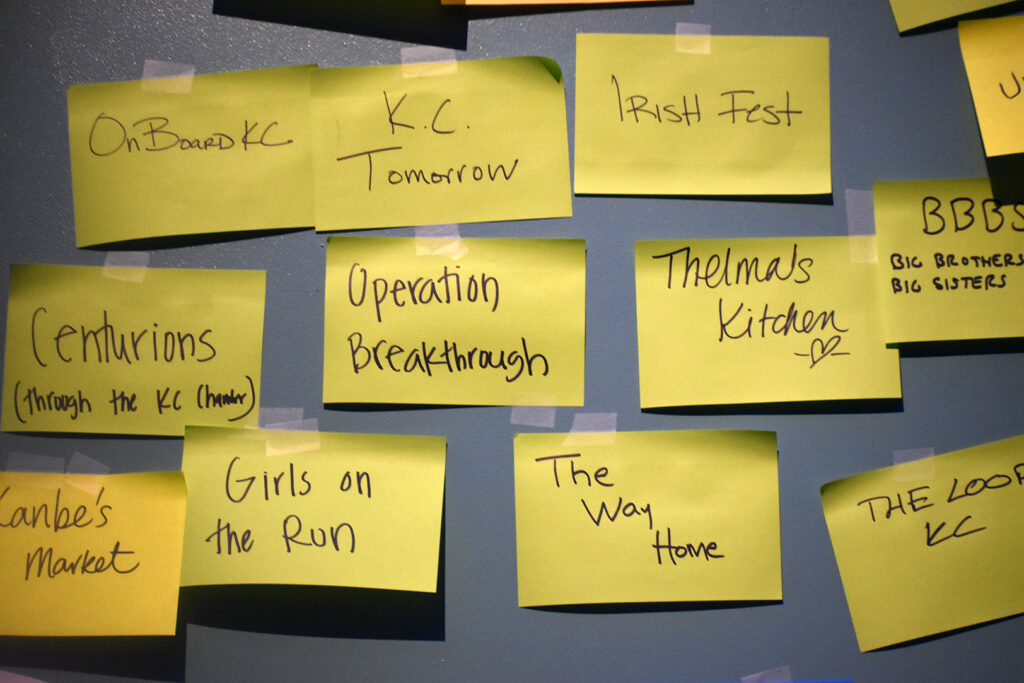 OnBoard KC
K.C.
Tomorrow
IRISH FEST
BBBS
BIG BROTHERS
BIG SISTERS
Centurions
(through the KC Chamber)
Operation
Breakthrough
Thelma's
Kitchen
Kanbe's
Market
Girls on
the Run
The
Way
Home
THE LOOP
KC